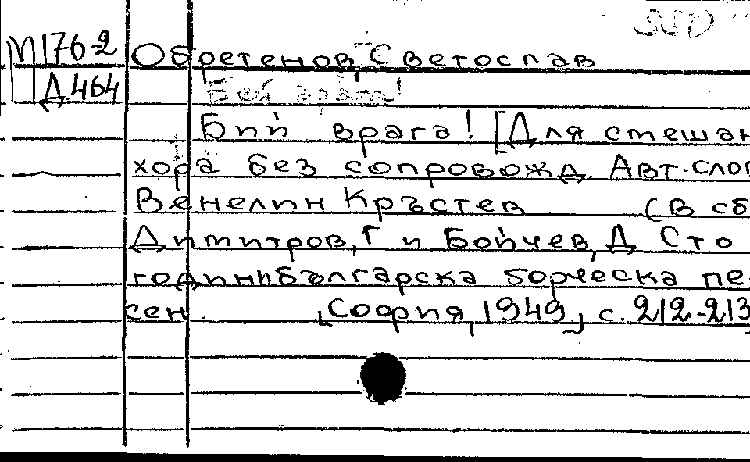 М176-2 Обретенов, Светослав
Д464 Бей врага!
Бий врага! [Для смешан
хора без сопровожд. Авт. слов
Венелин Кръстев (В сб
Димитров, Г и Бойчев, Д Сто
години българска борческа пе
сен. [София, 1949] с. 212-213